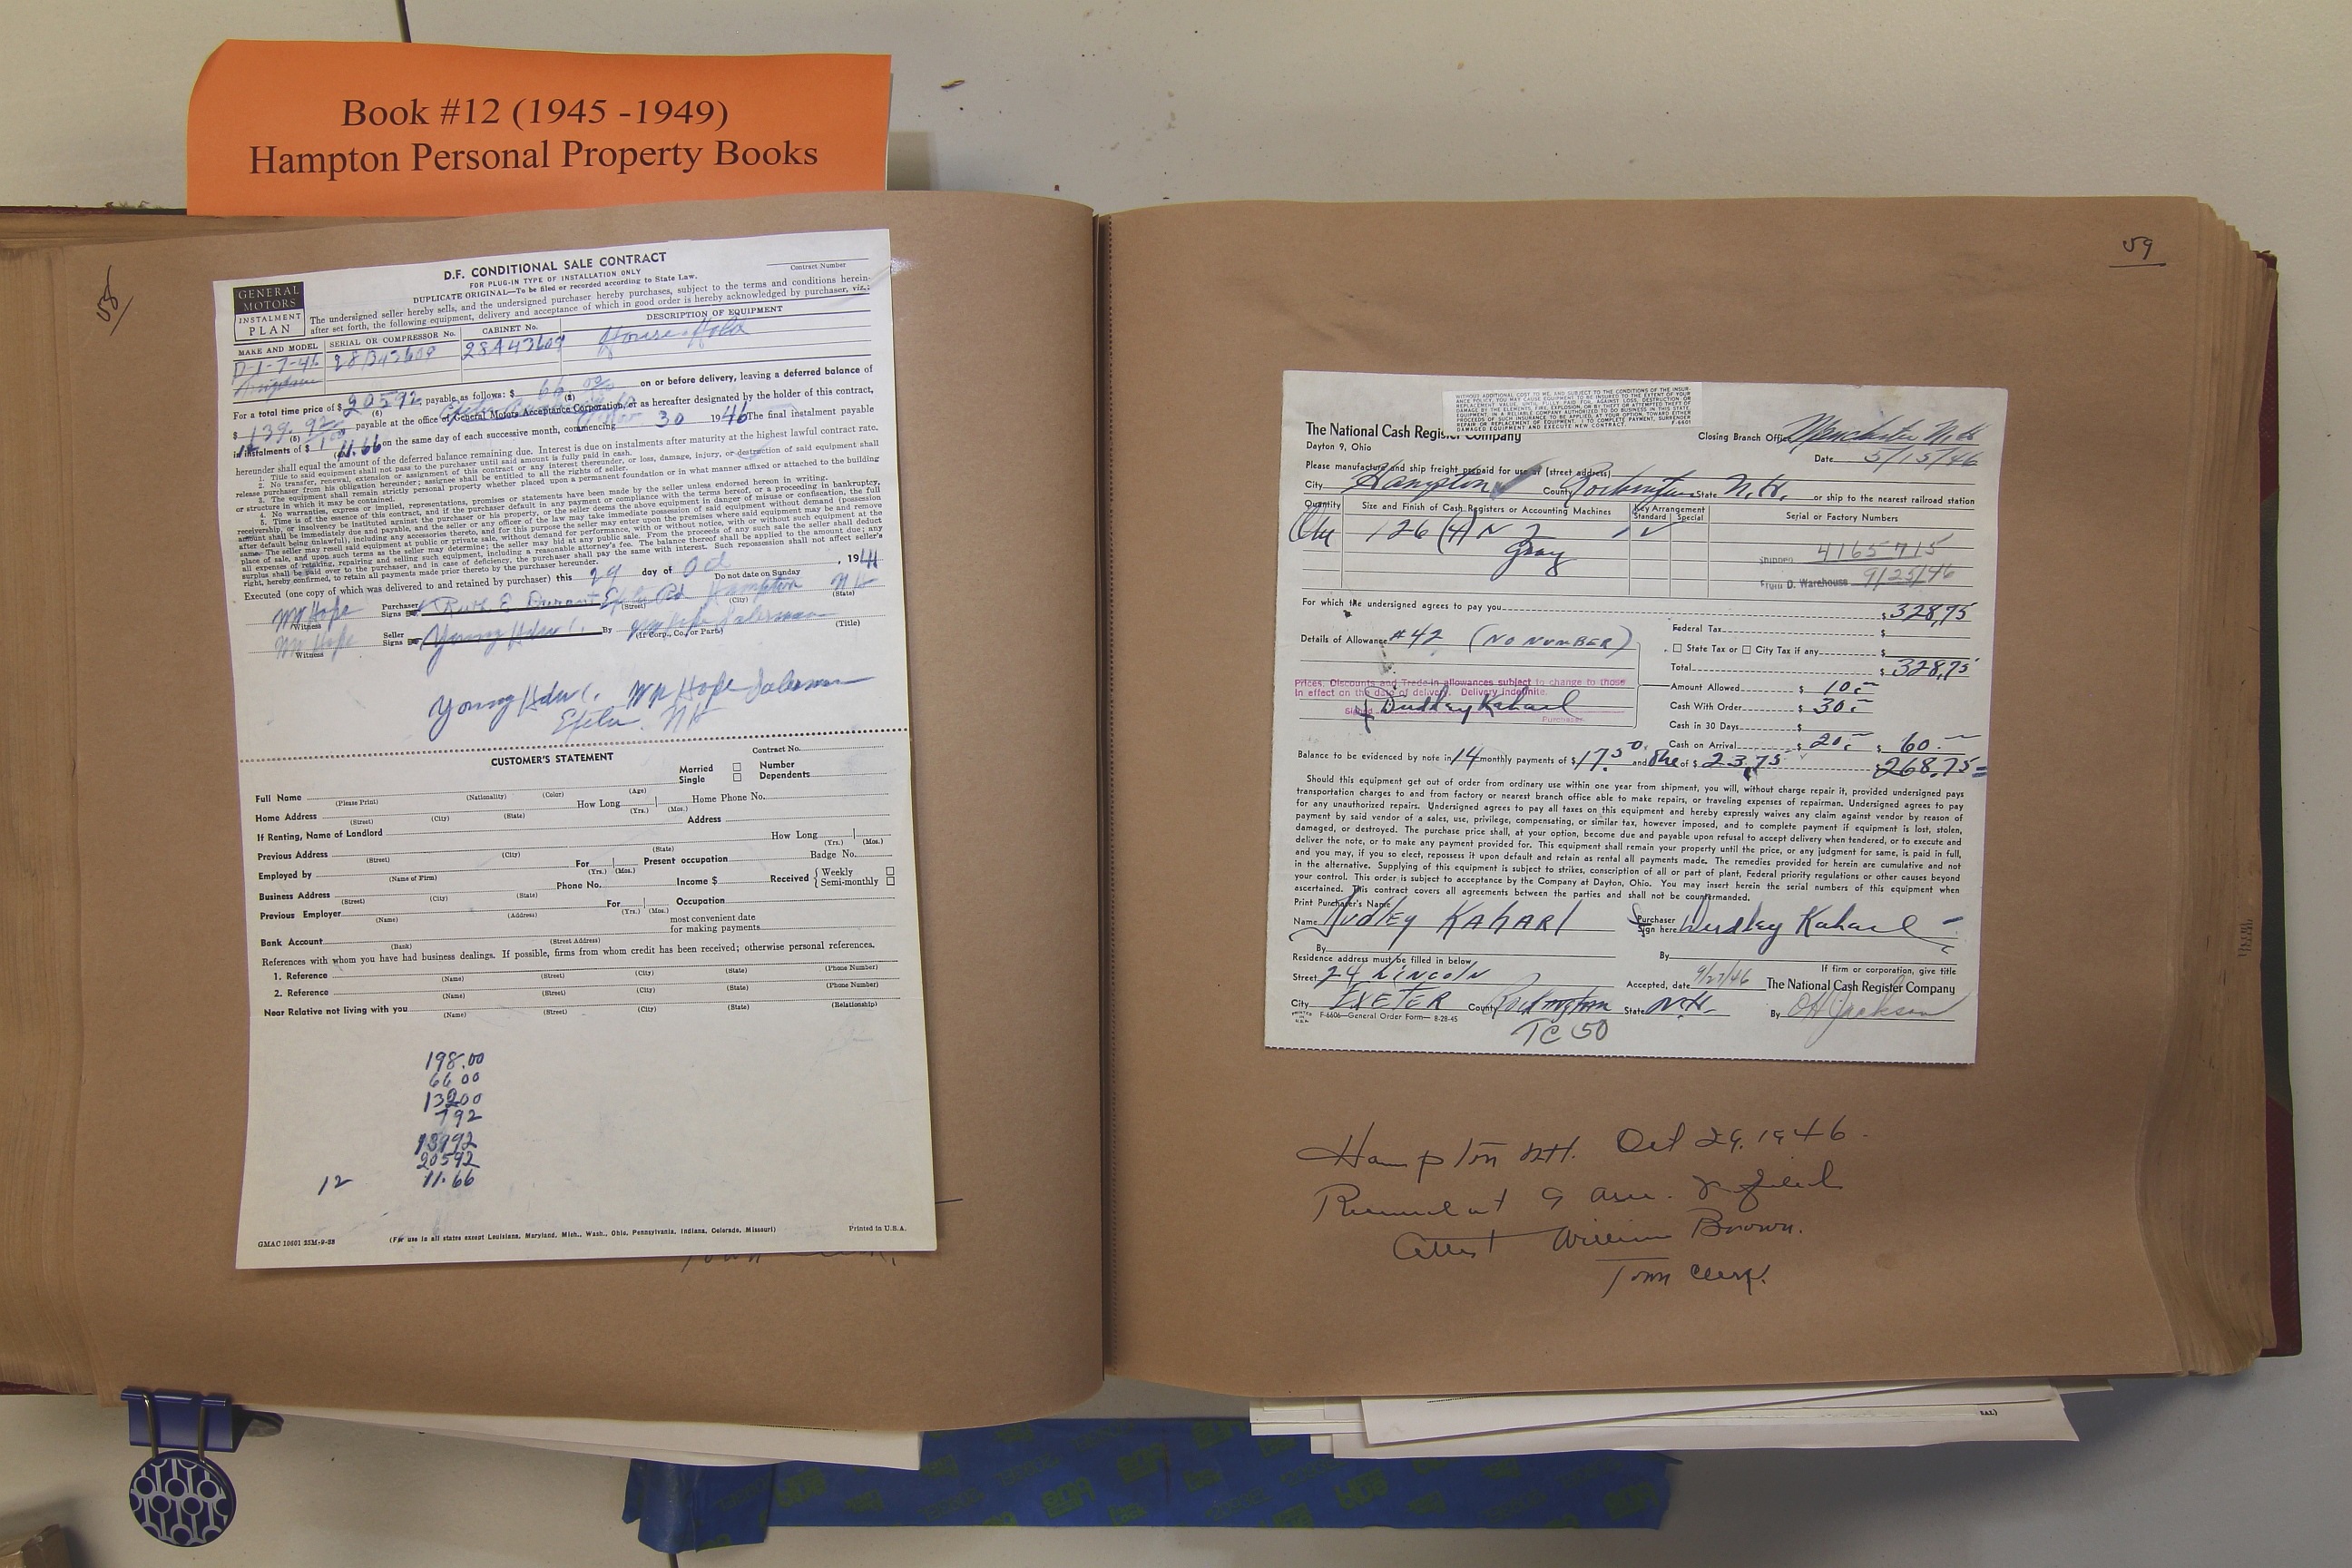 Book #12 (1945 -1949)
Hampton Personal Property Books
58
GENERAL
MOTORS
INSTALMENT
PLAN
D.F. CONDITIONAL SALE CONTRACT
FOR PLUG-IN TYPE OF INSTALLATION ONLY
DUPLICATE ORIGINAL—To be filed or recorded according to State Law.
Contract Number
The undersigned seller hereby sells, and the undersigned purchaser hereby purchases, subject to the terms and conditions herein-
after set forth, the following equipment, delivery and acceptance of which in good order is hereby acknowledged by purchaser, viz.:
MAKE AND MODEL SERIAL OR COMPRESSOR No. CABINET No. DESCRIPTION OF EQUIPMENT
D-1-7-46 28B43609 28A43609 House Hold
For a total time price of $ 205 92 payable as follows: $ 66.00 on or before delivery, leaving a deferred balance of
$ 139.92 payable at the office of General Motors Acceptance Corporation, or as hereafter designated by the holder of this contract,
in instalments of $ 11.66 on the same day of each successive month, commencing 30 1946 The final instalment payable
hereunder shall equal the amount of the deferred balance remaining due. Interest is due on instalments after maturity at the highest lawful contract rate.
1. Title to said equipment shall not pass to the purchaser until said amount is fully paid in cash.
2. No transfer, renewal, extension or assignment of this contract or any interest thereunder, or loss, damage, injury, or destruction of said equipment shall
release purchaser from his obligation hereunder; assignee shall be entitled to all the rights of seller.
3. The equipment shall remain strictly personal property whether placed upon a permanent foundation or in what manner affixed or attached to the building
or structure in which it may be contained.
4. No warranties, express or implied, representations, promises or statements have been made by the seller unless endorsed hereon in writing.
5. Time is of the essence of this contract, and if the purchaser default in any payment or compliance with the terms hereof, or a proceeding in bankruptcy,
receivership, or insolvency be instituted against the purchaser or his property, or the seller deems the above equipment in danger of misuse or confiscation, the full
amount shall be immediately due and payable, and the seller or any officer of the law may take immediate possession of said equipment without demand (possession
after default being unlawful), including any accessories thereto, and for this purpose the seller may enter upon the premises where said equipment may be and remove
same. The seller may resell said equipment at public or private sale, without demand for performance, with or without notice, with or without such equipment at the
place of sale, and upon such terms as the seller may determine; the seller may bid at any public sale. From the proceeds of any such sale the seller shall deduct
all expenses of retaking, repairing and selling such equipment, including a reasonable attorney's fee. The balance thereof shall be applied to the amount due; any
surplus shall be paid over to the purchaser, and in case of deficiency, the purchaser shall pay the same with interest. Such repossession shall not affect seller's
right, hereby confirmed, to retain all payments made prior thereto by the purchaser hereunder.
Executed (one copy of which was delivered to and retained by purchaser) this 29 day of Oct , 194
Do not date on Sunday
Wm Hope Purchaser Signs Ruth E Hampton NH
Witness (Street) (City) (State)
Wm Hope Seller Signs Young Hdw C. By Wm Hope Salesman
Witness (If Corp., Co., or Part.) (Title)
Young Hdw C. Wm Hope Salesman
Exeter NH
CUSTOMER'S STATEMENT
Contract No.
Married Number
Single Dependents
Full Name
(Please Print) (Nationality) (Color) (Age)
Home Address How Long Home Phone No.
(Street) (City) (State) (Yrs.) (Mos.)
If Renting, Name of Landlord Address
Previous Address How Long
(Street) (City) (State) (Yrs.) (Mos.)
Employed by For Present occupation Badge No.
(Name of Firm) (Yrs.) (Mos.)
Business Address Phone No. Income $ Received { Weekly
Semi-monthly
(Street) (City) (State)
Previous Employer For Occupation
(Name) (Address) (Yrs.) (Mos.)
Bank Account most convenient date
for making payments
(Bank) (Street Address)
References with whom you have had business dealings. If possible, firms from whom credit has been received; otherwise personal references.
1. Reference
(Name) (Street) (City) (State) (Phone Number)
2. Reference
(Name) (Street) (City) (State) (Phone Number)
Near Relative not living with you
(Name) (Street) (City) (State) (Relationship)
198.00
66 00
132 00
7 92
139 92
205 92
12 11.66
GMAC 10601 (For use in all states except Louisiana, Maryland, Mich., Wash., Ohio, Pennsylvania, Indiana, Colorado, Missouri) Printed in U.S.A.
59
WITHOUT ADDITIONAL COST TO ME, AND SUBJECT TO THE CONDITIONS OF THE INSUR-
ANCE POLICY, YOU MAY CAUSE EQUIPMENT TO BE INSURED TO THE EXTENT OF YOUR
REPLACEMENT VALUE, UNTIL FULLY PAID FOR, AGAINST LOSS, DESTRUCTION OR
DAMAGE BY THE ELEMENTS, FIRE, EXPLOSION, OR BY THEFT OR ATTEMPTED THEFT OF
EQUIPMENT, IN A RELIABLE COMPANY AUTHORIZED TO DO BUSINESS IN THIS STATE.
PROCEEDS OF SUCH INSURANCE TO BE APPLIED, AT YOUR OPTION, TOWARD EITHER
REPAIR OR REPLACEMENT OF EQUIPMENT. I TO COMPLETE PAYMENT, SURRENDER
DAMAGED EQUIPMENT AND EXECUTE NEW CONTRACT. F-6601
The National Cash Register Company
Dayton 9, Ohio
Closing Branch Office Manchester N.H.
Date 5/15/46
Please manufacture and ship freight prepaid for use at (street address)
City Hampton County Rockingham State N.H. or ship to the nearest railroad station
Quantity Size and Finish of Cash Registers or Accounting Machines Key Arrangement Standard Special Serial or Factory Numbers
One 126 (4) N 2
Gray
Shipped 4165715
From D. Warehouse 9/25/46
For which the undersigned agrees to pay you $ 328,75
Federal Tax $
State Tax or City Tax if any $
Total $ 328,75
Details of Allowance #42 (NO NUMBER)
Amount Allowed $ 10.-
Cash With Order $ 30.-
Cash in 30 Days $
Cash on Arrival $ 20.- $ 60.-
Prices, Discounts and Trade-in allowances subject to change to those
in effect on the date of delivery. Delivery indefinite.
Signed Dudley Kaharl
Purchaser
Balance to be evidenced by note in 14 monthly payments of $ 17.50 and One of $ 23,75 268,75
Should this equipment get out of order from ordinary use within one year from shipment, you will, without charge repair it, provided undersigned pays
transportation charges to and from factory or nearest branch office able to make repairs, or traveling expenses of repairman. Undersigned agrees to pay
for any unauthorized repairs. Undersigned agrees to pay all taxes on this equipment and hereby expressly waives any claim against vendor by reason of
payment by said vendor of a sales, use, privilege, compensating, or similar tax, however imposed, and to complete payment if equipment is lost, stolen,
damaged, or destroyed. The purchase price shall, at your option, become due and payable upon refusal to accept delivery when tendered, or to execute and
deliver the note, or to make any payment provided for. This equipment shall remain your property until the price, or any judgment for same, is paid in full,
and you may, if you so elect, repossess it upon default and retain as rental all payments made. The remedies provided for herein are cumulative and not
in the alternative. Supplying of this equipment is subject to strikes, conscription of all or part of plant, Federal priority regulations or other causes beyond
your control. This order is subject to acceptance by the Company at Dayton, Ohio. You may insert herein the serial numbers of this equipment when
ascertained. This contract covers all agreements between the parties and shall not be countermanded.
Print Purchaser's Name
Name Dudley Kaharl Purchaser Sign here Dudley Kaharl
By By
Residence address must be filled in below If firm or corporation, give title
Street 24 Lincoln Accepted, date 9/27/46 The National Cash Register Company
City Exeter County Rockingham State N.H. By Jackson
PRINTED IN U.S.A. F-6606—General Order Form— 8-28-45
TC 50
Hampton NH. Oct 29, 1946.
Received at 9 am. & filed
Attest William Brown.
Town Clerk.